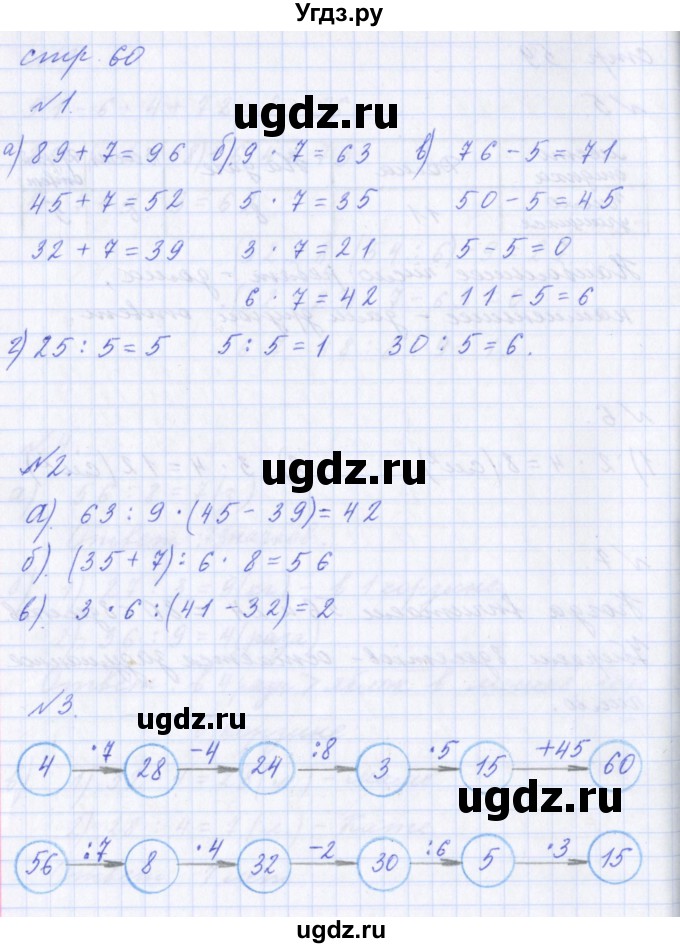 Угдз.ру
стр. 60
№1.
а) 89 + 7 = 96 б) 9 · 7 = 63 в) 76 - 5 = 71
45 + 7 = 52 5 · 7 = 35 50 - 5 = 45
32 + 7 = 39 3 · 7 = 21 5 - 5 = 0
6 · 7 = 42 11 - 5 = 6
г) 25 : 5 = 5 5 : 5 = 1 30 : 5 = 6.
№2.
а). 63 : 9 · (45 - 39) = 42
б). (35 + 7) : 6 · 8 = 56
в). 3 · 6 : (41 - 32) = 2
№3.
4 ·7 28 -4 24 :8 3 ·5 15 +45 60
56 :7 8 ·4 32 -2 30 :6 5 ·3 15
ugdz.ru
ugdz.ru
ugdz.ru
ugdz.ru
ugdz.ru
ugdz.ru
ugdz.ru